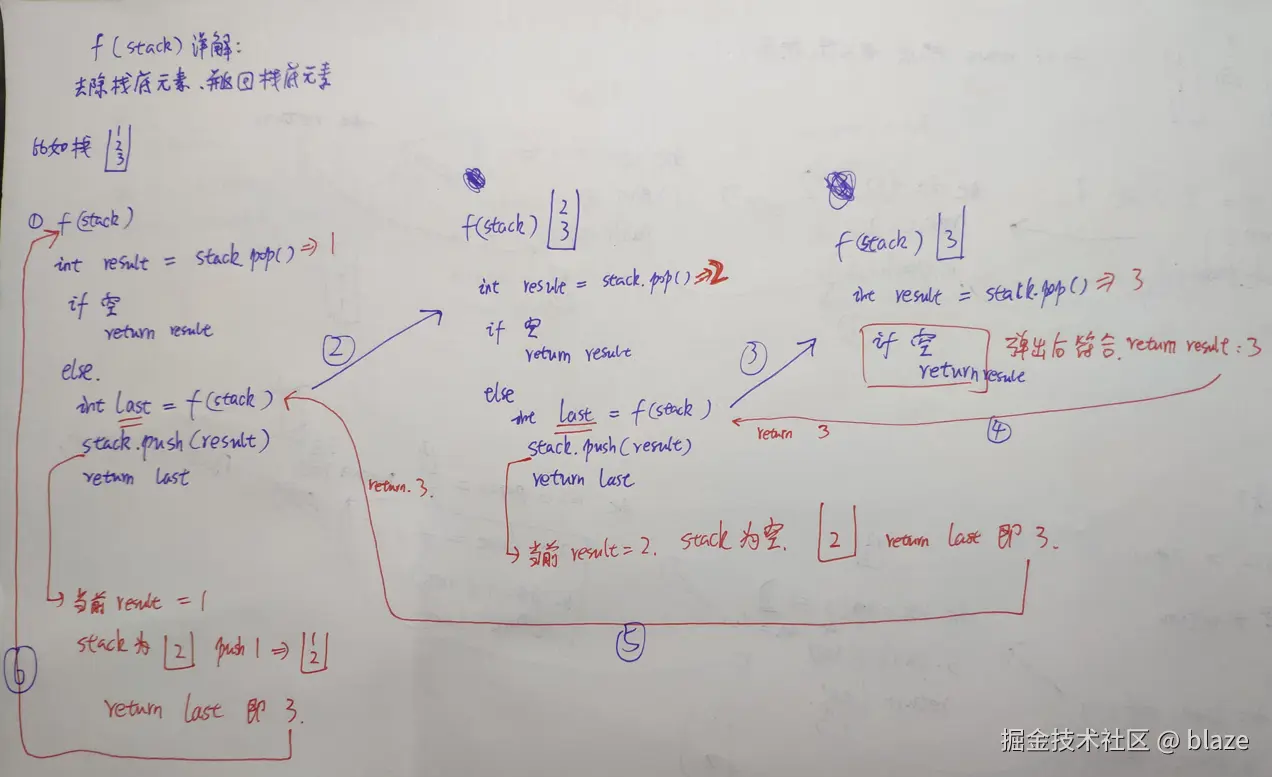 f(stack)详解:
去除栈底元素、并返回栈底元素
比如栈 1
2
3
① f(stack)
int result = stack.pop() => 1
if 空
return result
else.
int last = f(stack)
stack.push(result)
return last
当前 result = 1
stack为 2 push 1 => 1
2
return last 即 3.
②
f(stack) 2
3
int result = stack.pop() => 2
if 空
return result
else
int last = f(stack)
stack.push(result)
return last
当前 result = 2. stack为空. 2 return last 即 3.
③
f(stack) 3
int result = stack.pop() => 3
if 空
return result
弹出后符合. return result : 3
④
return 3
⑤
return. 3.
6
掘金技术社区 @ blaze